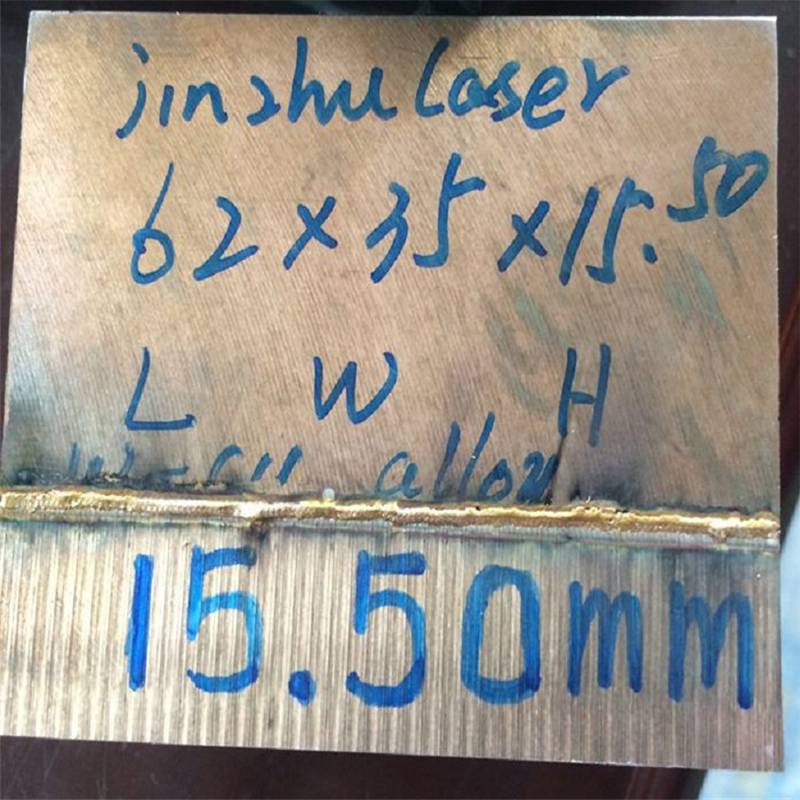 jinzhu laser
62 × 35 × 15.50
L W H
alloy
15.50mm